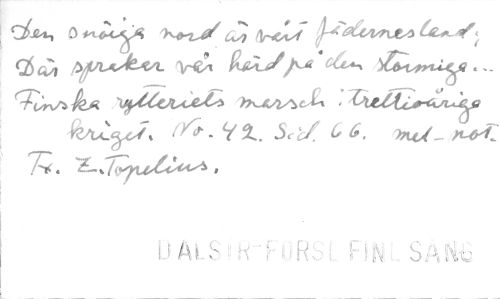 Den snöiga nord är vårt fädernesland;
Där sprakar vår härd på den stormiga...
Finska rytteriets marsch i trettioåriga
kriget. No. 42. Sid. 66. mel-not.
Tx. Z. Topelius.
DALSTR-FORSL FINL SÅNG